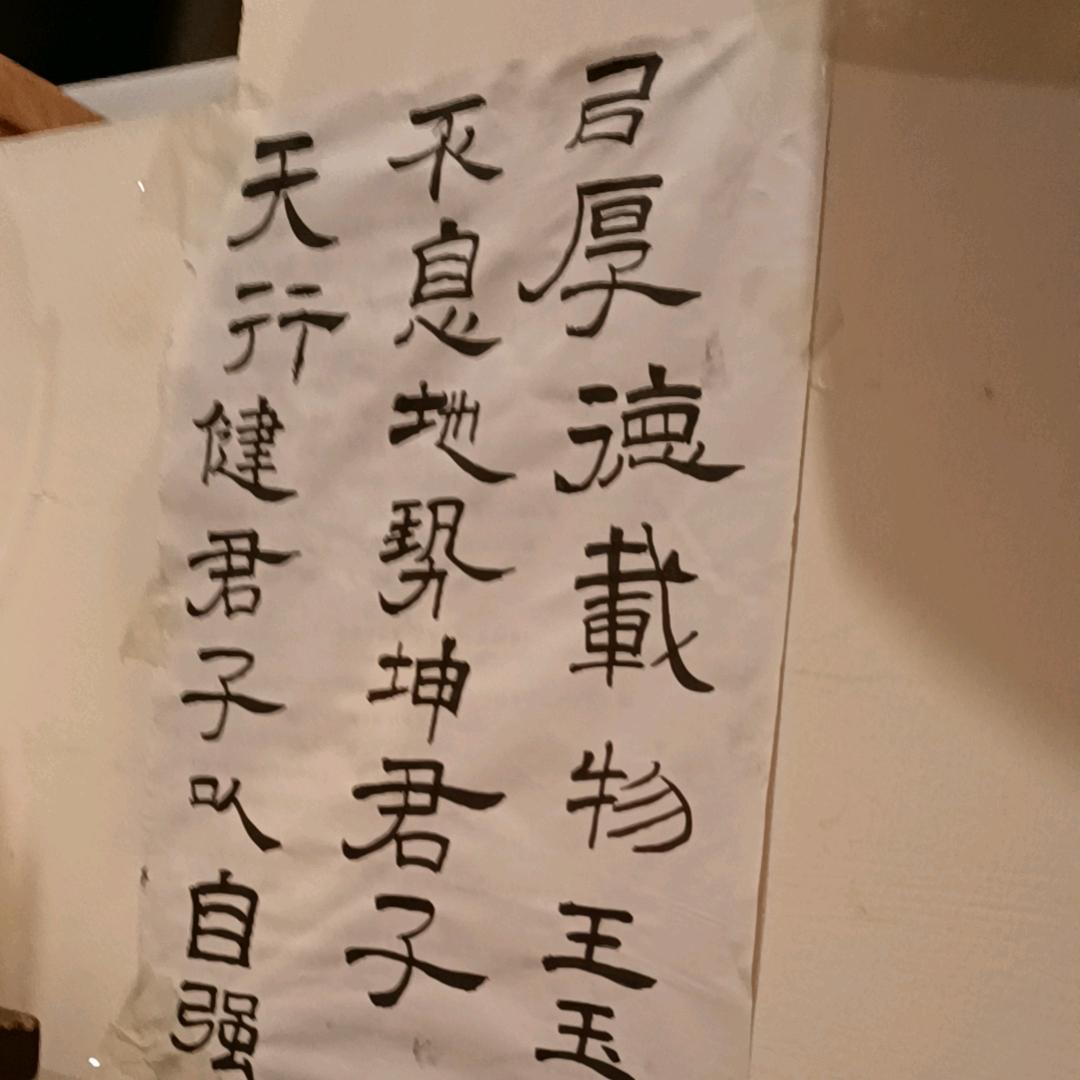 天行健君子以自强
不息地勢坤君子
㠯厚德載物王玉